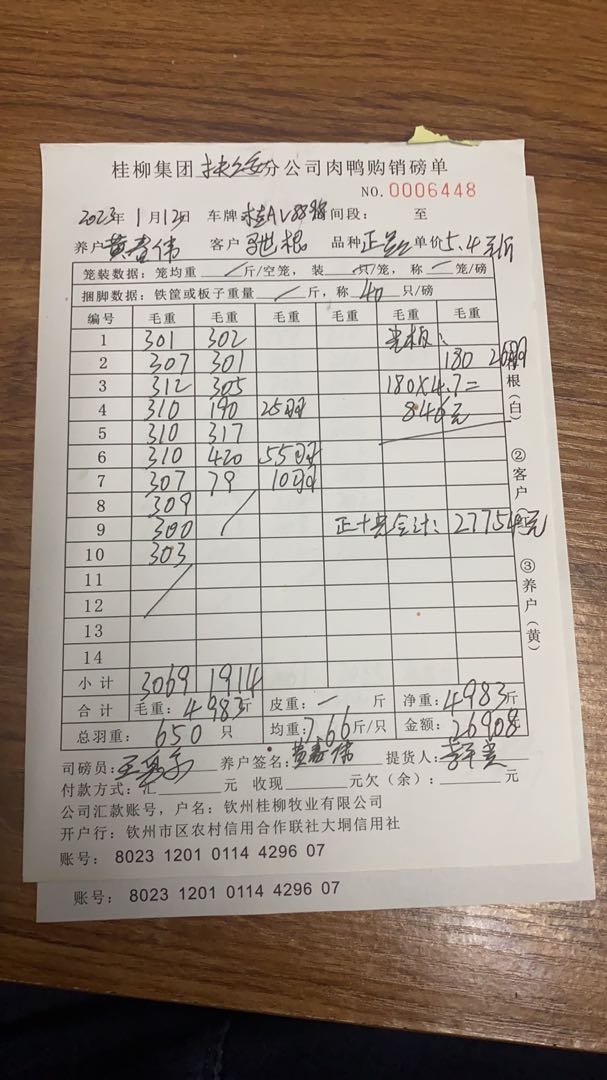 桂柳集团扶绥分公司肉鸭购销磅单
NO.0006448
2023年1月12日 车牌 时间段： 至
养户 黄 伟 客户 根 品种 正 单价 5.4元/斤
笼装数据：笼均重 / 斤/空笼，装 / 只/笼，称 / 笼/磅
捆脚数据：铁筐或板子重量 / 斤，称 40 只/磅
编号 毛重 毛重 毛重 毛重 毛重 毛重
1 301 302
2 307 301 180
3 312 305 180×4.7=
4 310 190 25羽 846元
5 310 317
6 310 420 55羽
7 307 79 10羽
8 309
9 300 合计：27754元
10 303
11
12
13
14
小计 3069 1914
合计 毛重：4983斤 皮重：— 斤 净重：4983斤
总羽重：650 只 均重：7.66斤/只 金额：26908元
司磅员： 养户签名： 提货人：
付款方式：汇 元 收现 元欠（余）： 元
公司汇款账号，户名：钦州桂柳牧业有限公司
开户行：钦州市区农村信用合作联社大垌信用社
账号：8023 1201 0114 4296 07
账号：8023 1201 0114 4296 07
根（白）
②客户
③养户（黄）